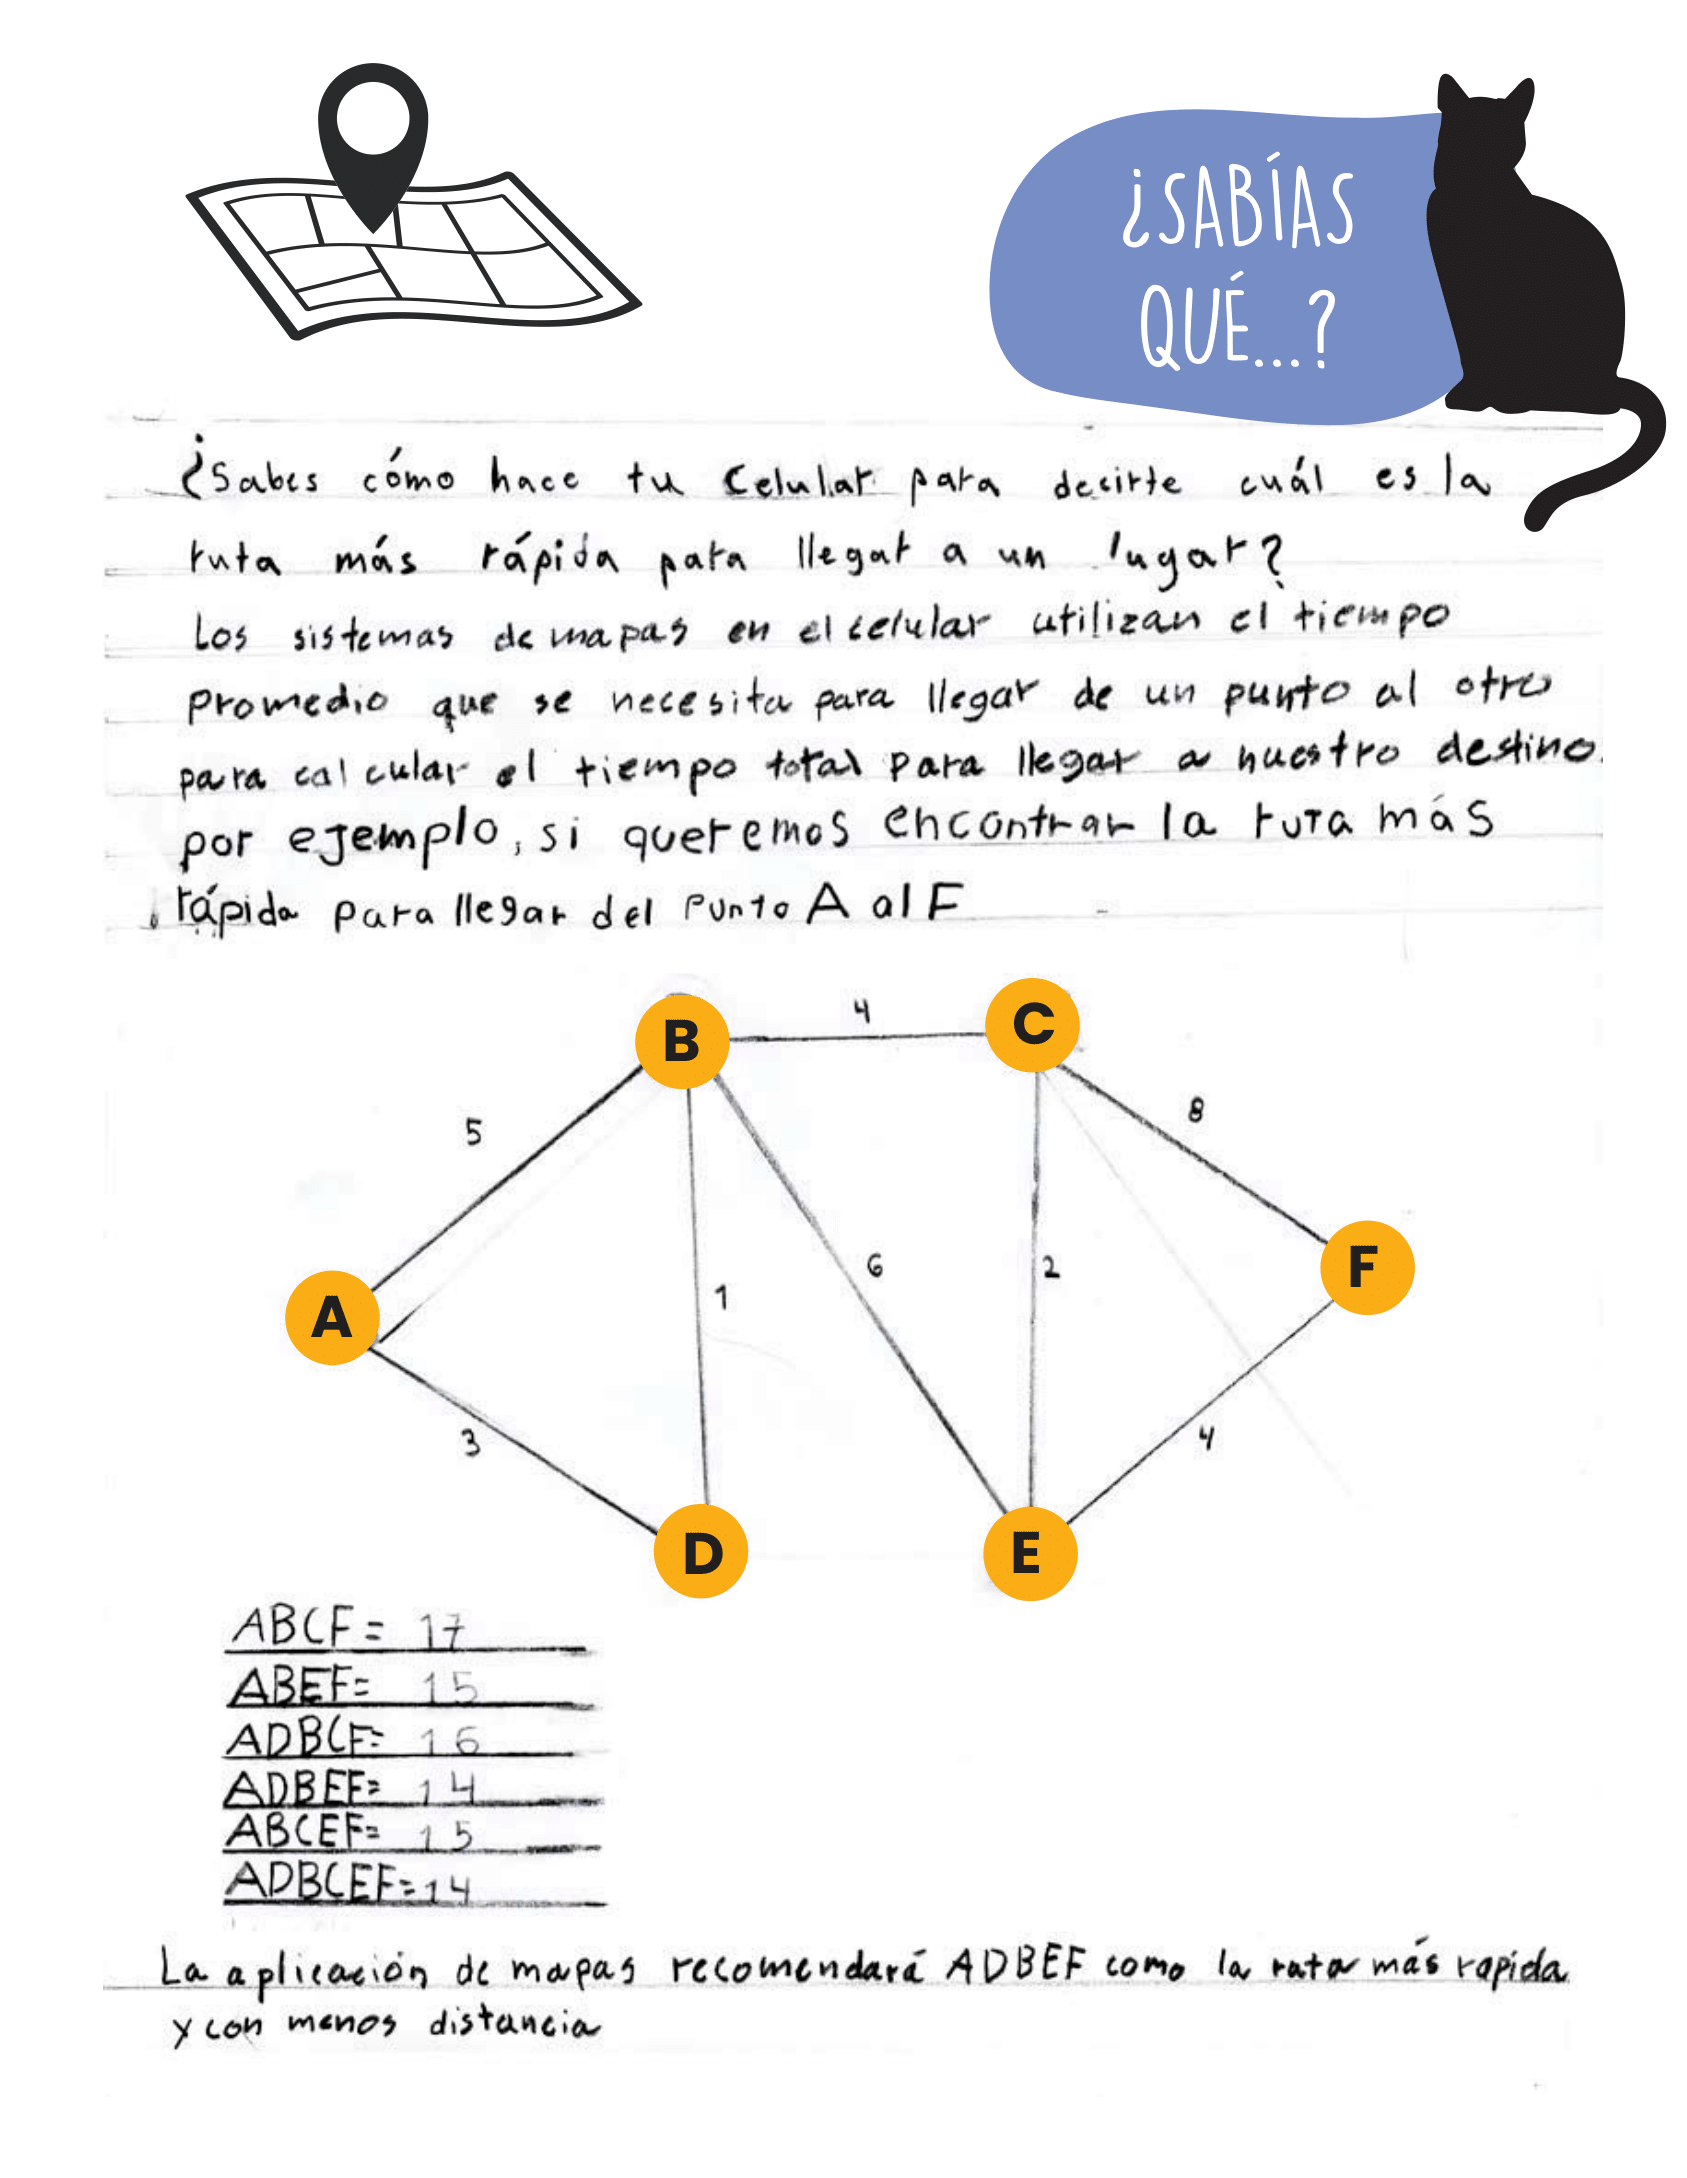 ¿SABÍAS
QUÉ...?
¿Sabes cómo hace tu Celular para decirte cuál es la
ruta más rápida para llegar a un lugar?
Los sistemas de mapas en el celular utilizan el tiempo
promedio que se necesita para llegar de un punto al otro
para calcular el tiempo total para llegar a nuestro destino.
por ejemplo, si queremos encontrar la ruta más
rápida para llegar del Punto A al F
B
4
C
5
8
A
1
6
2
F
3
4
D
E
ABCF= 17
ABEF= 15
ADBCF= 16
ADBEF= 14
ABCEF= 15
ADBCEF=14
La aplicación de mapas recomendará ADBEF como la ruta más rapida
y con menos distancia